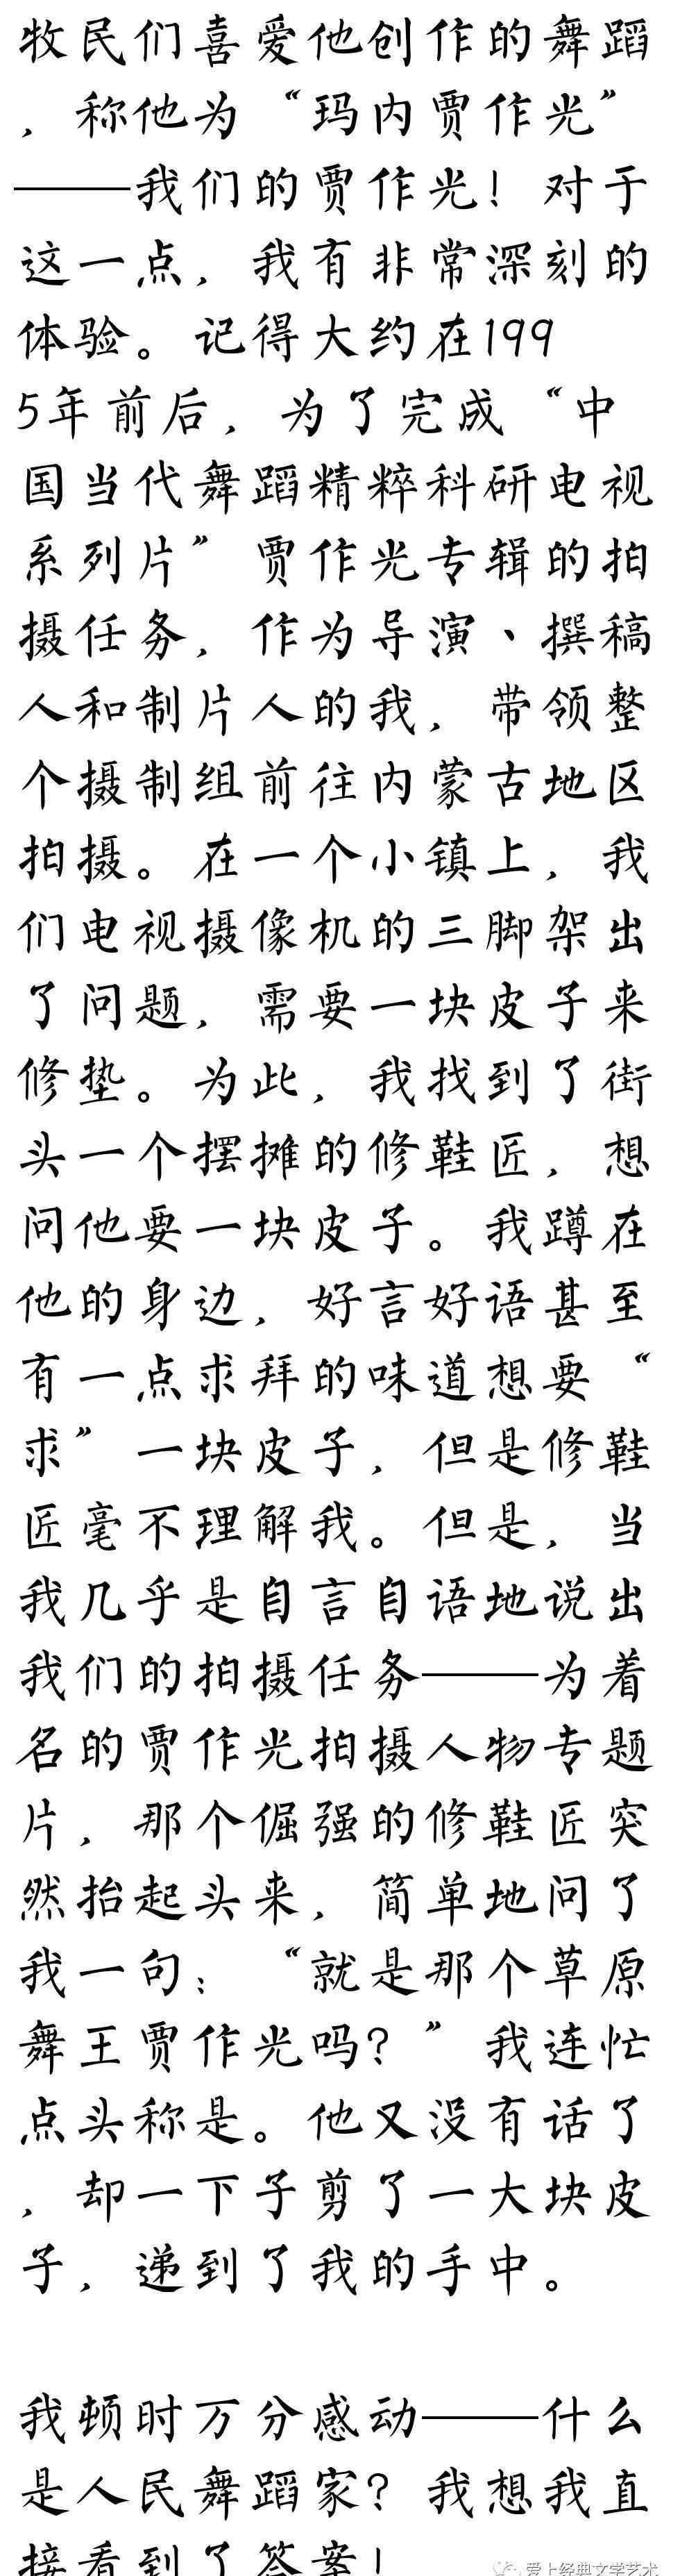 牧民们喜爱他创作的舞蹈
，称他为“玛内贾作光”
——我们的贾作光！对于
这一点，我有非常深刻的
体验。记得大约在199
5年前后，为了完成“中
国当代舞蹈精粹科研电视
系列片”贾作光专辑的拍
摄任务，作为导演、撰稿
人和制片人的我，带领整
个摄制组前往内蒙古地区
拍摄。在一个小镇上，我
们电视摄像机的三脚架出
了问题，需要一块皮子来
修垫。为此，我找到了街
头一个摆摊的修鞋匠，想
问他要一块皮子。我蹲在
他的身边，好言好语甚至
有一点求拜的味道想要“
求”一块皮子，但是修鞋
匠毫不理解我。但是，当
我几乎是自言自语地说出
我们的拍摄任务——为着
名的贾作光拍摄人物专题
片，那个倔强的修鞋匠突
然抬起头来，简单地问了
我一句：“就是那个草原
舞王贾作光吗？”我连忙
点头称是。他又没有话了
，却一下子剪了一大块皮
子，递到了我的手中。
我顿时万分感动——什么
是人民舞蹈家？我想我直
接看到了答案！
爱上经典文学艺术